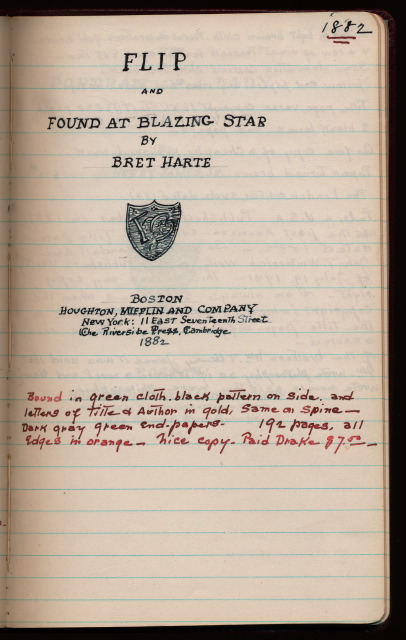 1882
FLIP
AND
FOUND AT BLAZING STAR
BY
BRET HARTE
BOSTON
HOUGHTON, MIFFLIN AND COMPANY
New York: 11 East Seventeenth Street
The Riverside Press, Cambridge
1882
Bound in green cloth, black pattern on side, and
letters of Title & Author in gold, Same on Spine—
Dark gray green end-papers- 192 pages, all
Edges in orange— Nice copy- Paid Drake $7.00—